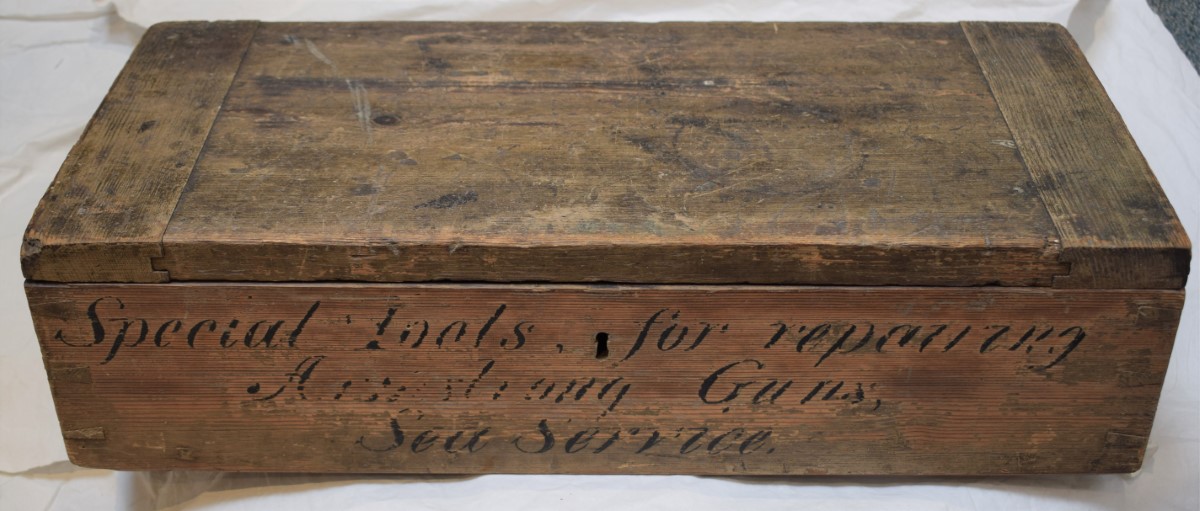 Special Tools, for repairing
Armstrong Guns,
Sea Service.